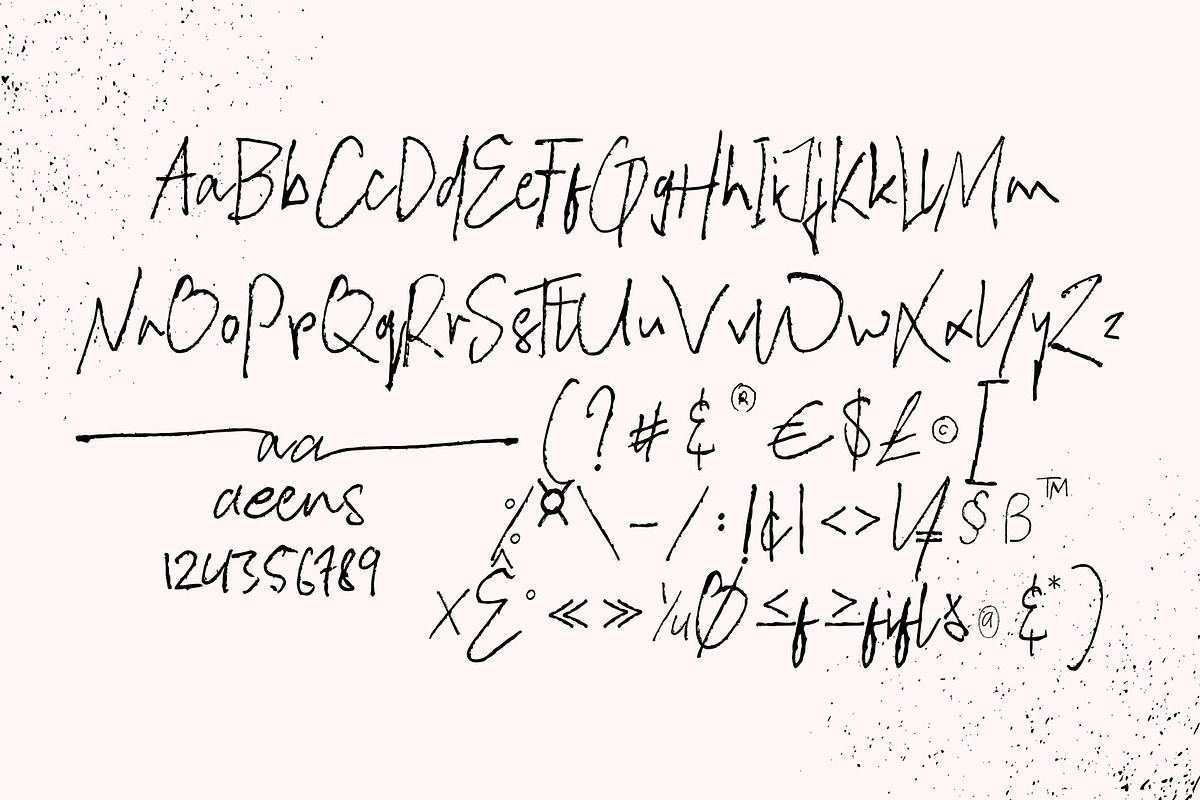 AaBbCcDdEeFfGgHhIiJjKkLlMm
NnOoPpQqRrSsTtUuVvWwXxYyZz
aa
aeens
124356789
(?#&®€$£©[
%¤\-/:|¢|<>¥§ß™
×Σ°«»¼Ø≤f≥fiflɣ@&*)